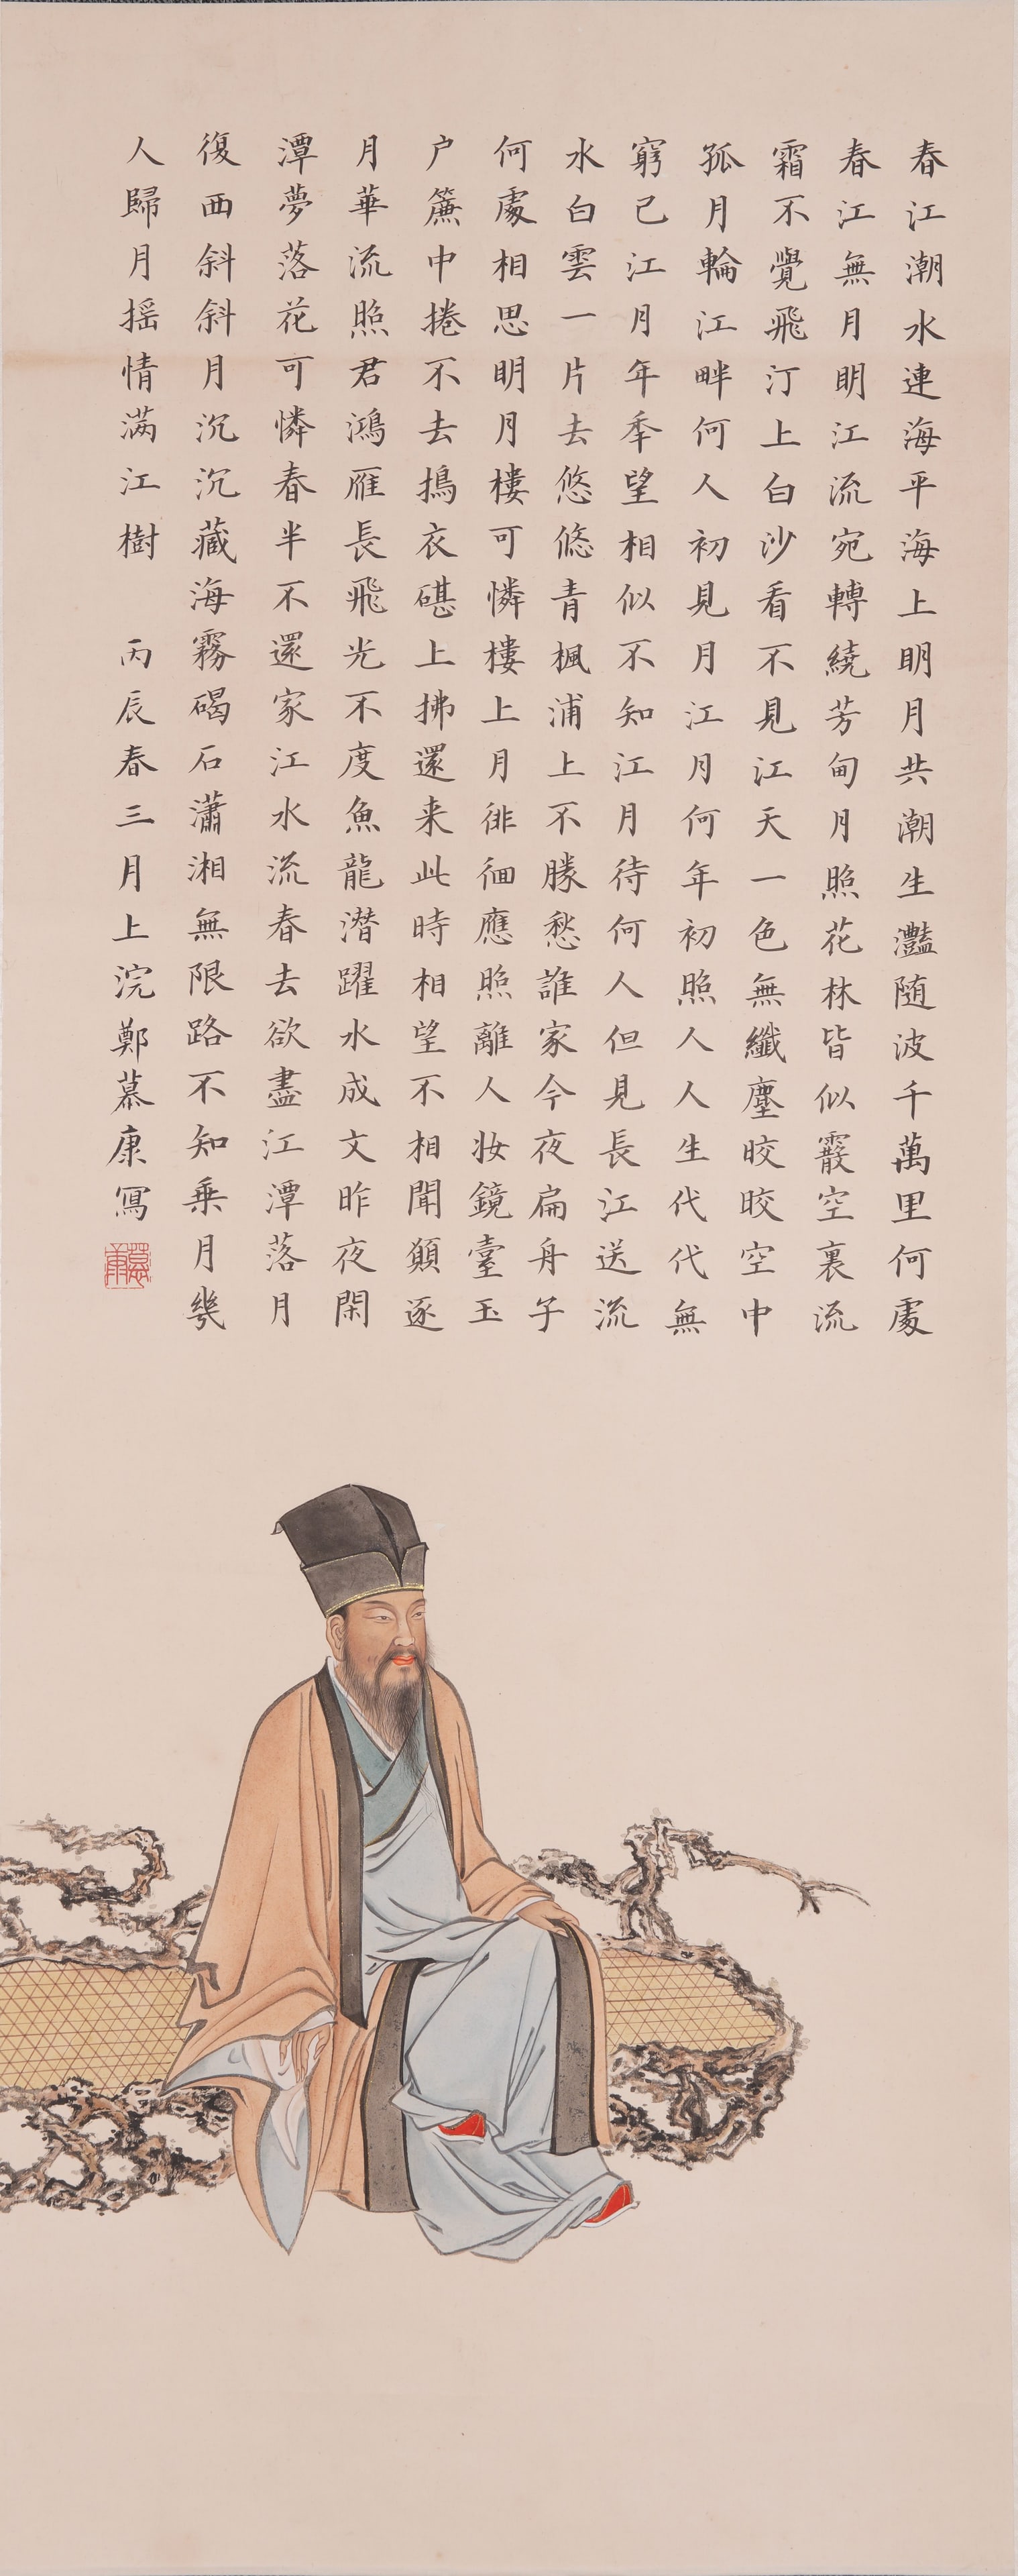 春江潮水連海平海上明月共潮生灩随波千萬里何處
春江無月明江流宛轉繞芳甸月照花林皆似霰空裏流
霜不覺飛汀上白沙看不見江天一色無纖塵晈晈空中
孤月輪江畔何人初見月江月何年初照人人生代代無
窮已江月年秊望相似不知江月待何人但見長江送流
水白雲一片去悠悠青楓浦上不勝愁誰家今夜扁舟子
何處相思明月樓可憐樓上月徘徊應照離人妝鏡臺玉
户簾中捲不去搗衣碪上拂還来此時相望不相聞願逐
月華流照君鴻雁長飛光不度魚龍潛躍水成文昨夜閑
潭夢落花可憐春半不還家江水流春去欲盡江潭落月
復西斜斜月沉沉藏海霧碣石瀟湘無限路不知乗月幾
人歸月摇情满江樹 丙辰春三月上浣鄭慕康寫
慕康